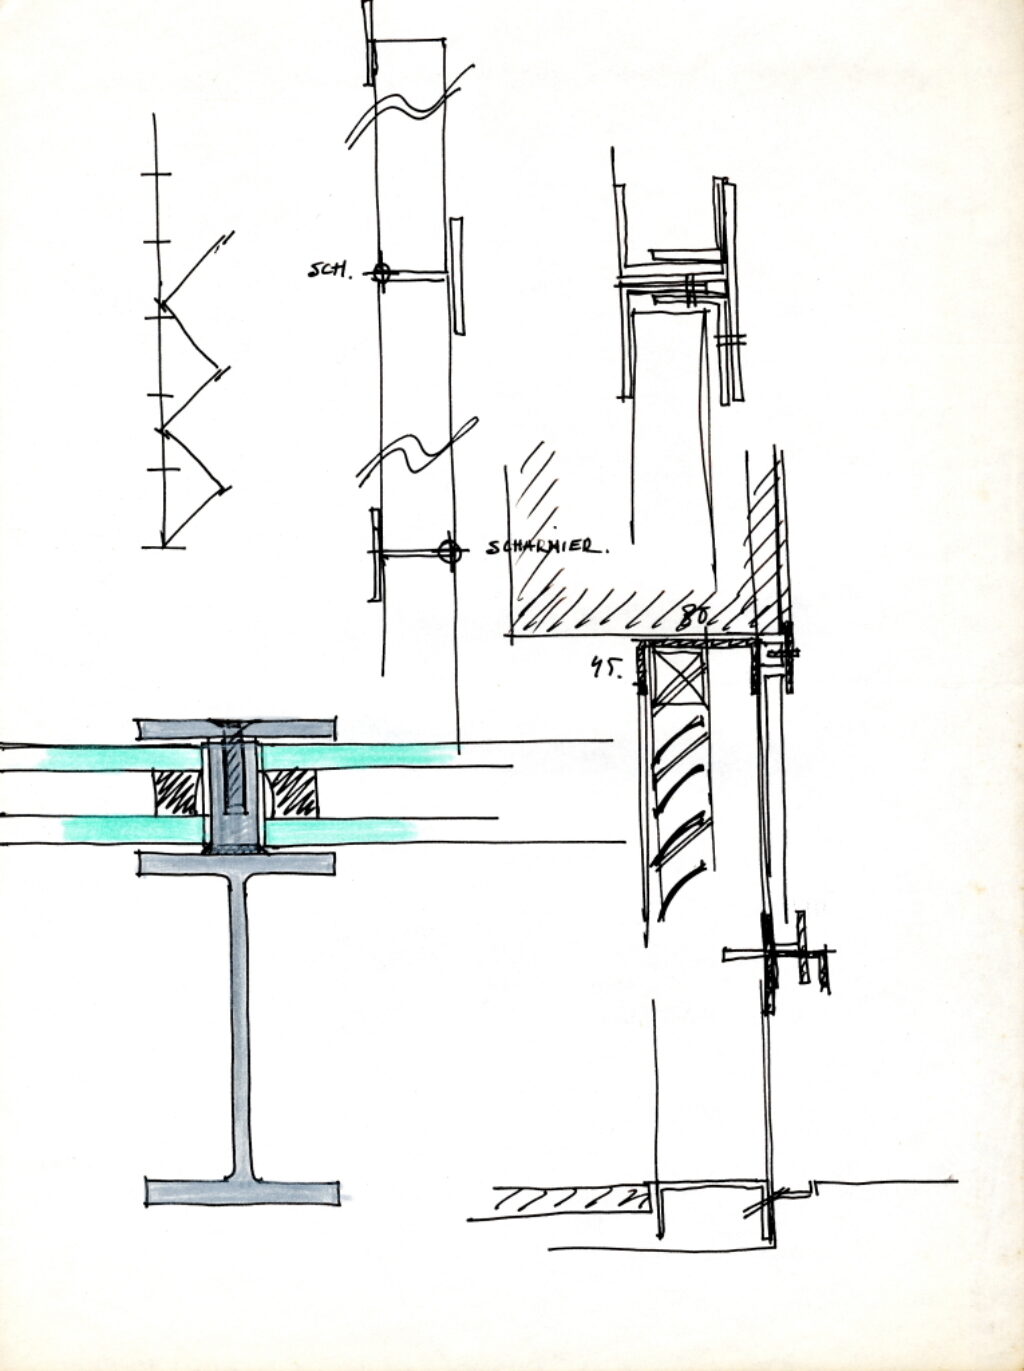 SCH.
SCHARNIER.
80
45.